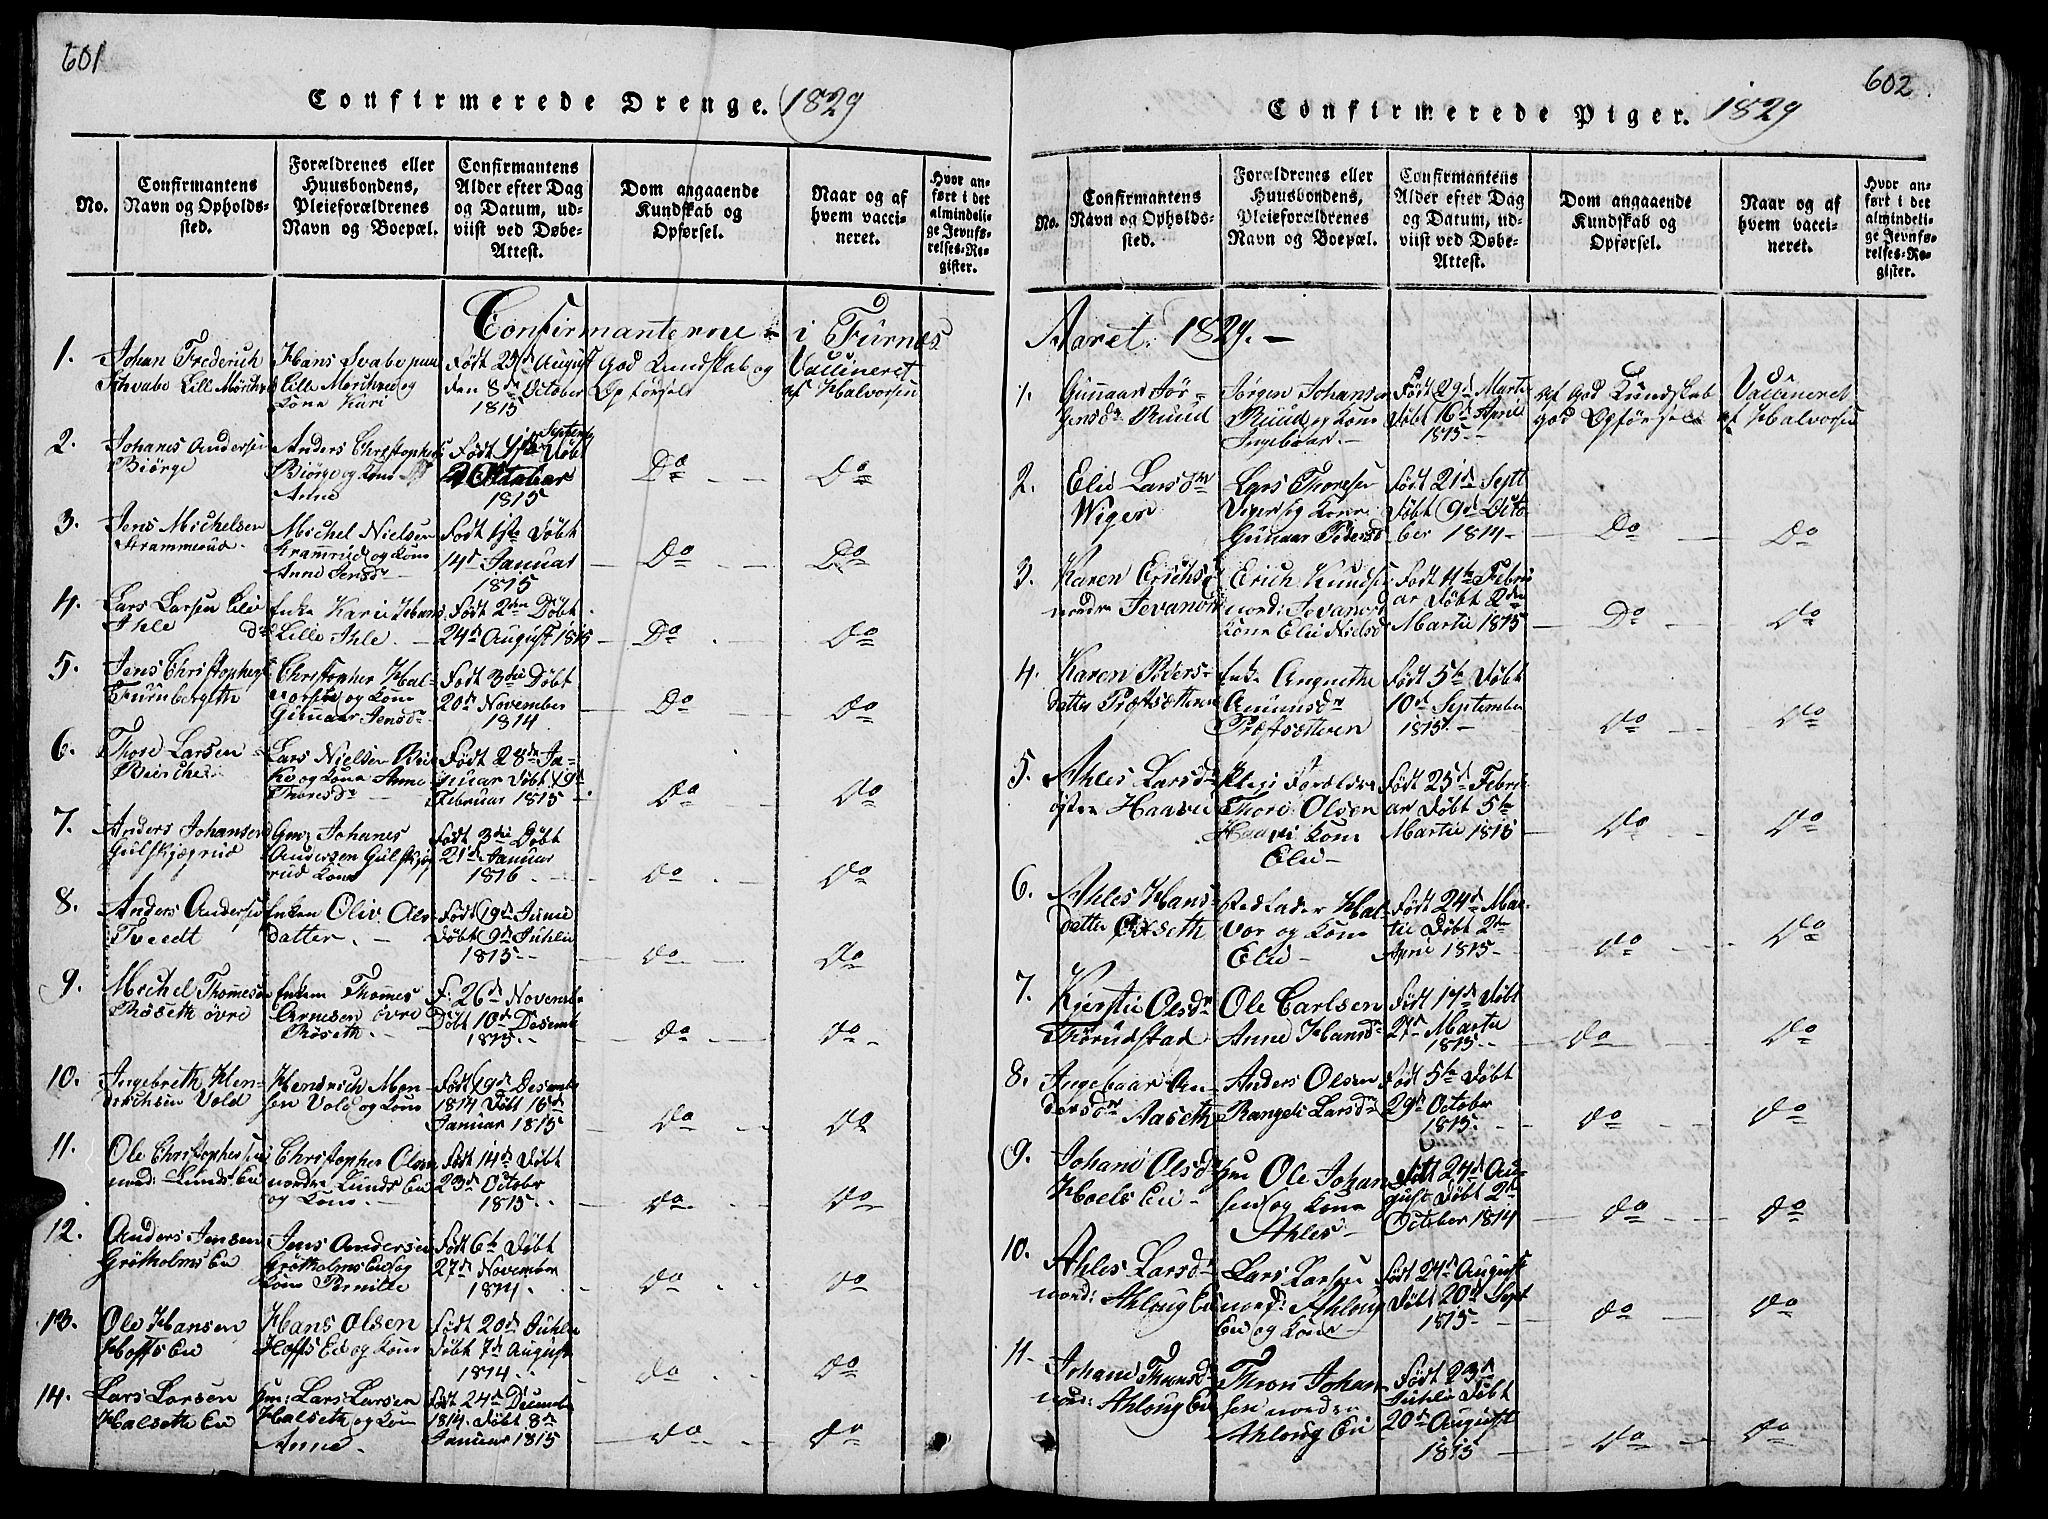 601
Confirmerede Drenge. 1829
No.
Confirmantens Navn og Opholdssted.
Forældrenes eller Huusbondens, Pleieforældrenes Navn og Boepæl.
Confirmantens Alder efter Dag og Datum, udviist ved Døbe-Attest.
Dom angaaende Kundskab og Opførsel.
Naar og af hvem vaccineret.
Hvor anført i det almindelige Jevnførelses-Register.
Confirmanterne i Furnæs
1.
Johan Frederich
Schvabe Lille
Hans Svabe
Lille
Kone Kari
Født 29de August
den 8de October
1815
God Kundskab og
Opførsel
Vaccineret
af Halvorsen
2.
Johanes Andersen
Biørge
Anders Christophers
Biørge og Kone
Anne
Født
Septemb
Døbt
October
1815
Do
Do
3.
Jens Michelsen
Michel Nielsen
og Kone
Anne Jensdr
Født 1ste Døbt
14d Januar
1815
Do
Do
4.
Lars Larsen Lille
Ihle
Enke Karie Hans
dr Lille Ihle.
Født 2den Døbt
24d August 1815
Do
Do
5.
Jens Christophers
Furuberget
Christopher Hal-
vorsen og Kone
Gunnaar Jensdr
Født 3die Døbt
20d November
1814
Do
Do
6.
Thore Larsen
Birche
Lars Nielsen Bir
ke og Kone Anne
Thoresdr
Født 28de Ja-
nuar Døbt 19d
Februar 1815
Do
Do
7.
Anders Johansen
Gulskjægrud
Gm: Johanes
Andersen Gulskjæg
rud Kone
Født 3die Døbt
21d Januar
1816.
do
Do
8.
Anders Andersen
Tvedt
Enken Oliv Ols
datter.
Født 19d Junie
Døbt 9d Juhlie
1815.
do
Do
9.
Michel Thommesen
Røseth øvre
Enkem Thommes
Arnesen øvre
Røseth.
F. 26d Novemb
Døbt 10d Desemb
1815.
do
do
10.
Ingebreth Hen-
drichsen Vold
Hendrich Mon-
sen Vold og Kone
Født 19d Desemb
1814 Døbt 15d
Januar 1815
do
do
11.
Ole Christophersen
nord: Lunds Eie
Christopher Olsen
nordre Lunds Eie
og Kone
Født 14d Døbt
23d October
1815.
do
do
12.
Anders Jensen
Grøtholms Eie
Jens Andersen
Grøtholms Eie og
Kone Pernille
Født 6te Døbt
27d November
1814.
do
do
13.
Ole Hansen
Hoffs Eie
Hans Olsen
Hoffs Eie og Kone
Født 20d Juhlie
Døbt 7d August
1814.
do
do
14.
Lars Larsen
Halseth Eie
Gm: Lars Larsen
Halseth og Kone
Anne.
Født 24d Decemb
1814. Døbt 8d
Januar 1815
do
do
602
Confirmerede Piger. 1829
No.
Confirmantens Navn og Opholdssted.
Forældrenes eller Huusbondens, Pleieforældrenes Navn og Boepæl.
Confirmantens Alder efter Dag og Datum, udviist ved Døbe-Attest.
Dom angaaende Kundskab og Opførsel.
Naar og af hvem vaccineret.
Hvor anført i det almindelige Jevnførelses-Register.
Aaret. 1829.
1.
Gunnaar Jør-
gensdr Ruud
Jørgen Johansen
Ruud og Kone
Ingebaar.
Født 29d Martie
Døbt 16d Aprie
1815.
Af God Kundskab
god Opførsel
Vaccineret
af Halvorsen
2.
Elie Larsdr
Wiger
Lars Thoresen
og Kone
Gunaar Pedersd
Født 21d Sept
Døbt 9d Octo
ber 1814.
Do
Do
3.
Karen Erichsd
nordre Jevanord
Erich Knudsen
nord: Jevanord
Kone Elie Nielsd
Født 4te Febru
ar Døbt 2den
Martie 1815
Do
Do
4.
Karen Peders-
datter Præstsætteren
Enke Angnethe
Amunsdr
Præstsætteren
Født 5te Døbt
10d September
1815.
Do
Do
5.
Ahles Larsdr
østre Haave
Pleie Forældre
Thore Olsen
Kone
Elie
Født 25d Febru
ar Døbt 5te
Martie 1815
Do
Do
6.
Ahles Hans-
datter
Stedfader Hal-
vor og Kone
Elie
Født 24d Mar-
tie Døbt 2den
Aprie 1815.
Do
Do
7.
Kjerstie Olsdr
Thorudstad
Ole Carlsen
Anne Hansdr
Født 17d Døbt
27d Martie
1815.
do
Do
8.
Ingebaar An-
dersdr Aaseth
Anders Olsen
Rangele Larsdr
Født 5te Døbt
29d October
1815.
do
do
9.
Johane Olsd
Hoels Eie
Gm Ole Johan
sen og Kone
Ahles
Født 24d Au-
gust Døbt 2d
October 1814
do
do
10.
Ahles Larsdr
nord: Ahloug Eie
Lars Larsen
nord: Ahloug
Eie og Kone
Født 24d August
Døbt 20d Sept
1815.
do
do
11.
Johane Thronsd
nord: Ahloug Eie
Thron Johan
sen nordre
Ahloug Eie
Født 23d
Juhlie Døbt
20d August
1815
do
Do